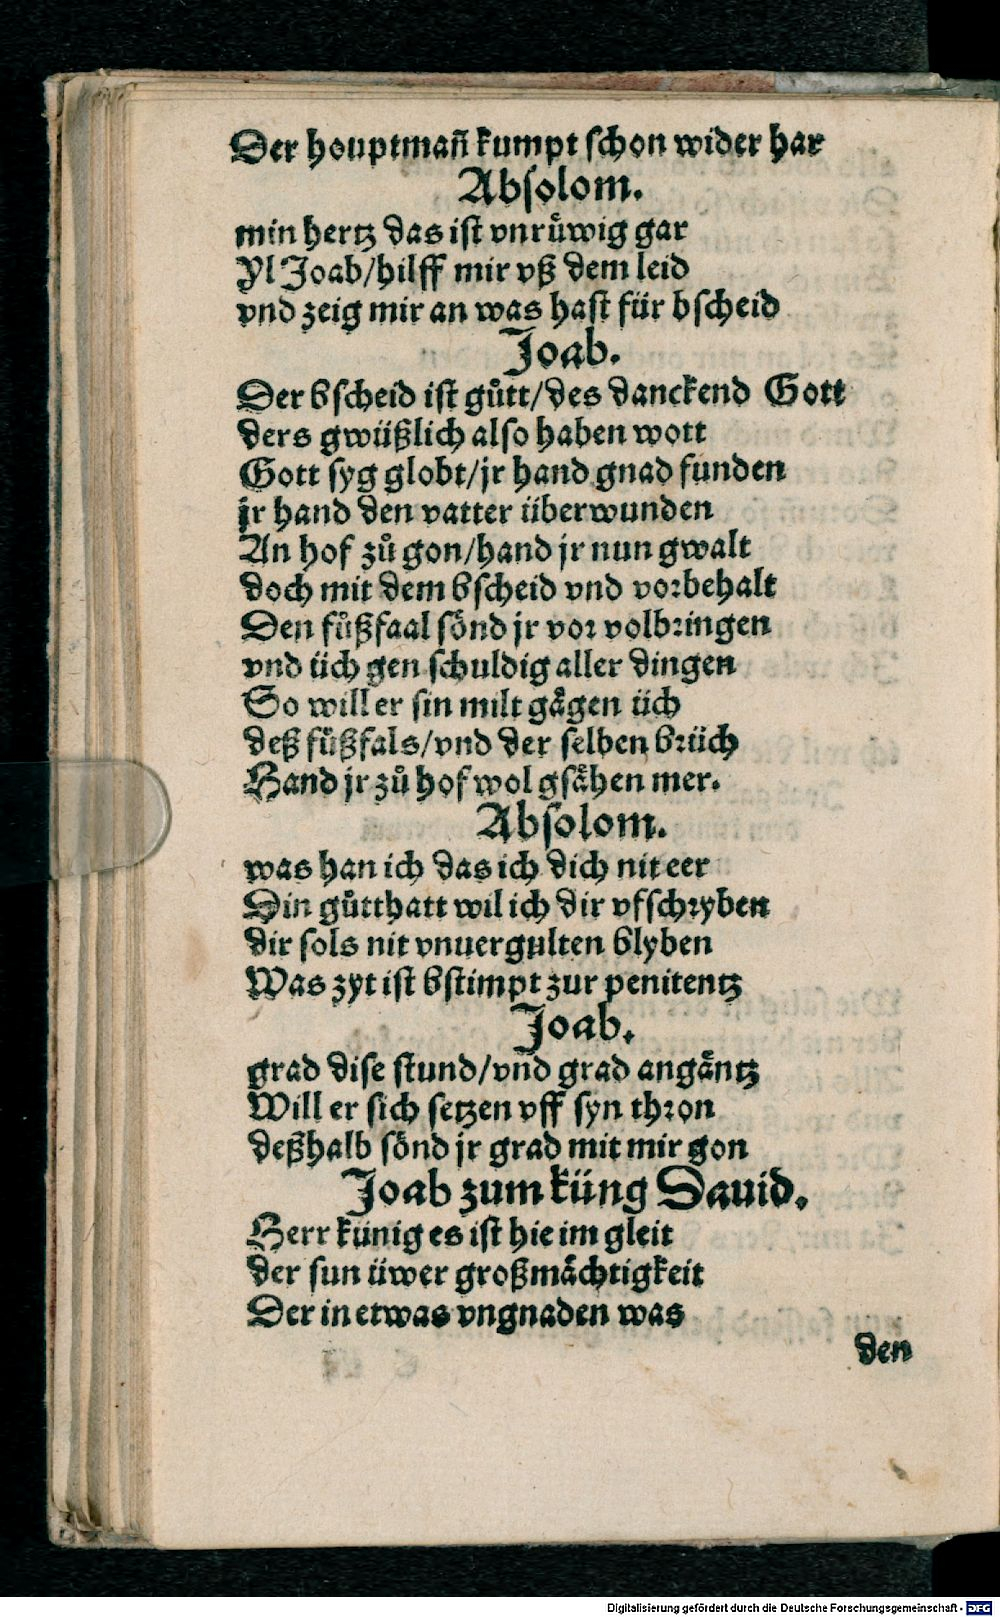 Der houptmañ kumpt schon wider har
Absolom.
min hertz das ist vnrůwig gar
Yl Joab/hilff mir vß dem leid
vnd zeig mir an was hast für bscheid
Joab.
Der bscheid ist gůtt/des danckend Gott
ders gwüßlich also haben wott
Gott syg globt/jr hand gnad funden
jr hand den vatter überwunden
An hof zů gon/hand jr nun gwalt
doch mit dem bscheid vnd vorbehalt
Den fůßfaal sönd jr vor volbringen
vnd üch gen schuldig aller dingen
So will er sin milt gägen üch
deß fůßfals/vnd der selben brüch
Hand jr zů hof wol gsähen mer.
Absolom.
was han ich das ich dich nit eer
Din gůtthatt wil ich dir vfschryben
dir sols nit vnuergulten blyben
Was zyt ist bstimpt zur penitentz
Joab.
grad dise stund/vnd grad angäntz
Will er sich setzen vff syn thron
deßhalb sönd jr grad mit mir gon
Joab zum küng Dauid.
Herr künig es ist hie im gleit
der sun üwer großmächtigkeit
Der in etwas vngnaden was
den
Digitalisierung gefördert durch die Deutsche Forschungsgemeinschaft - DFG